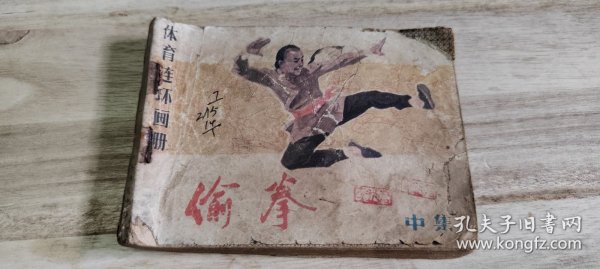 体育连环画册
偷拳
中集
孔夫子旧书网
www.kongfz.com